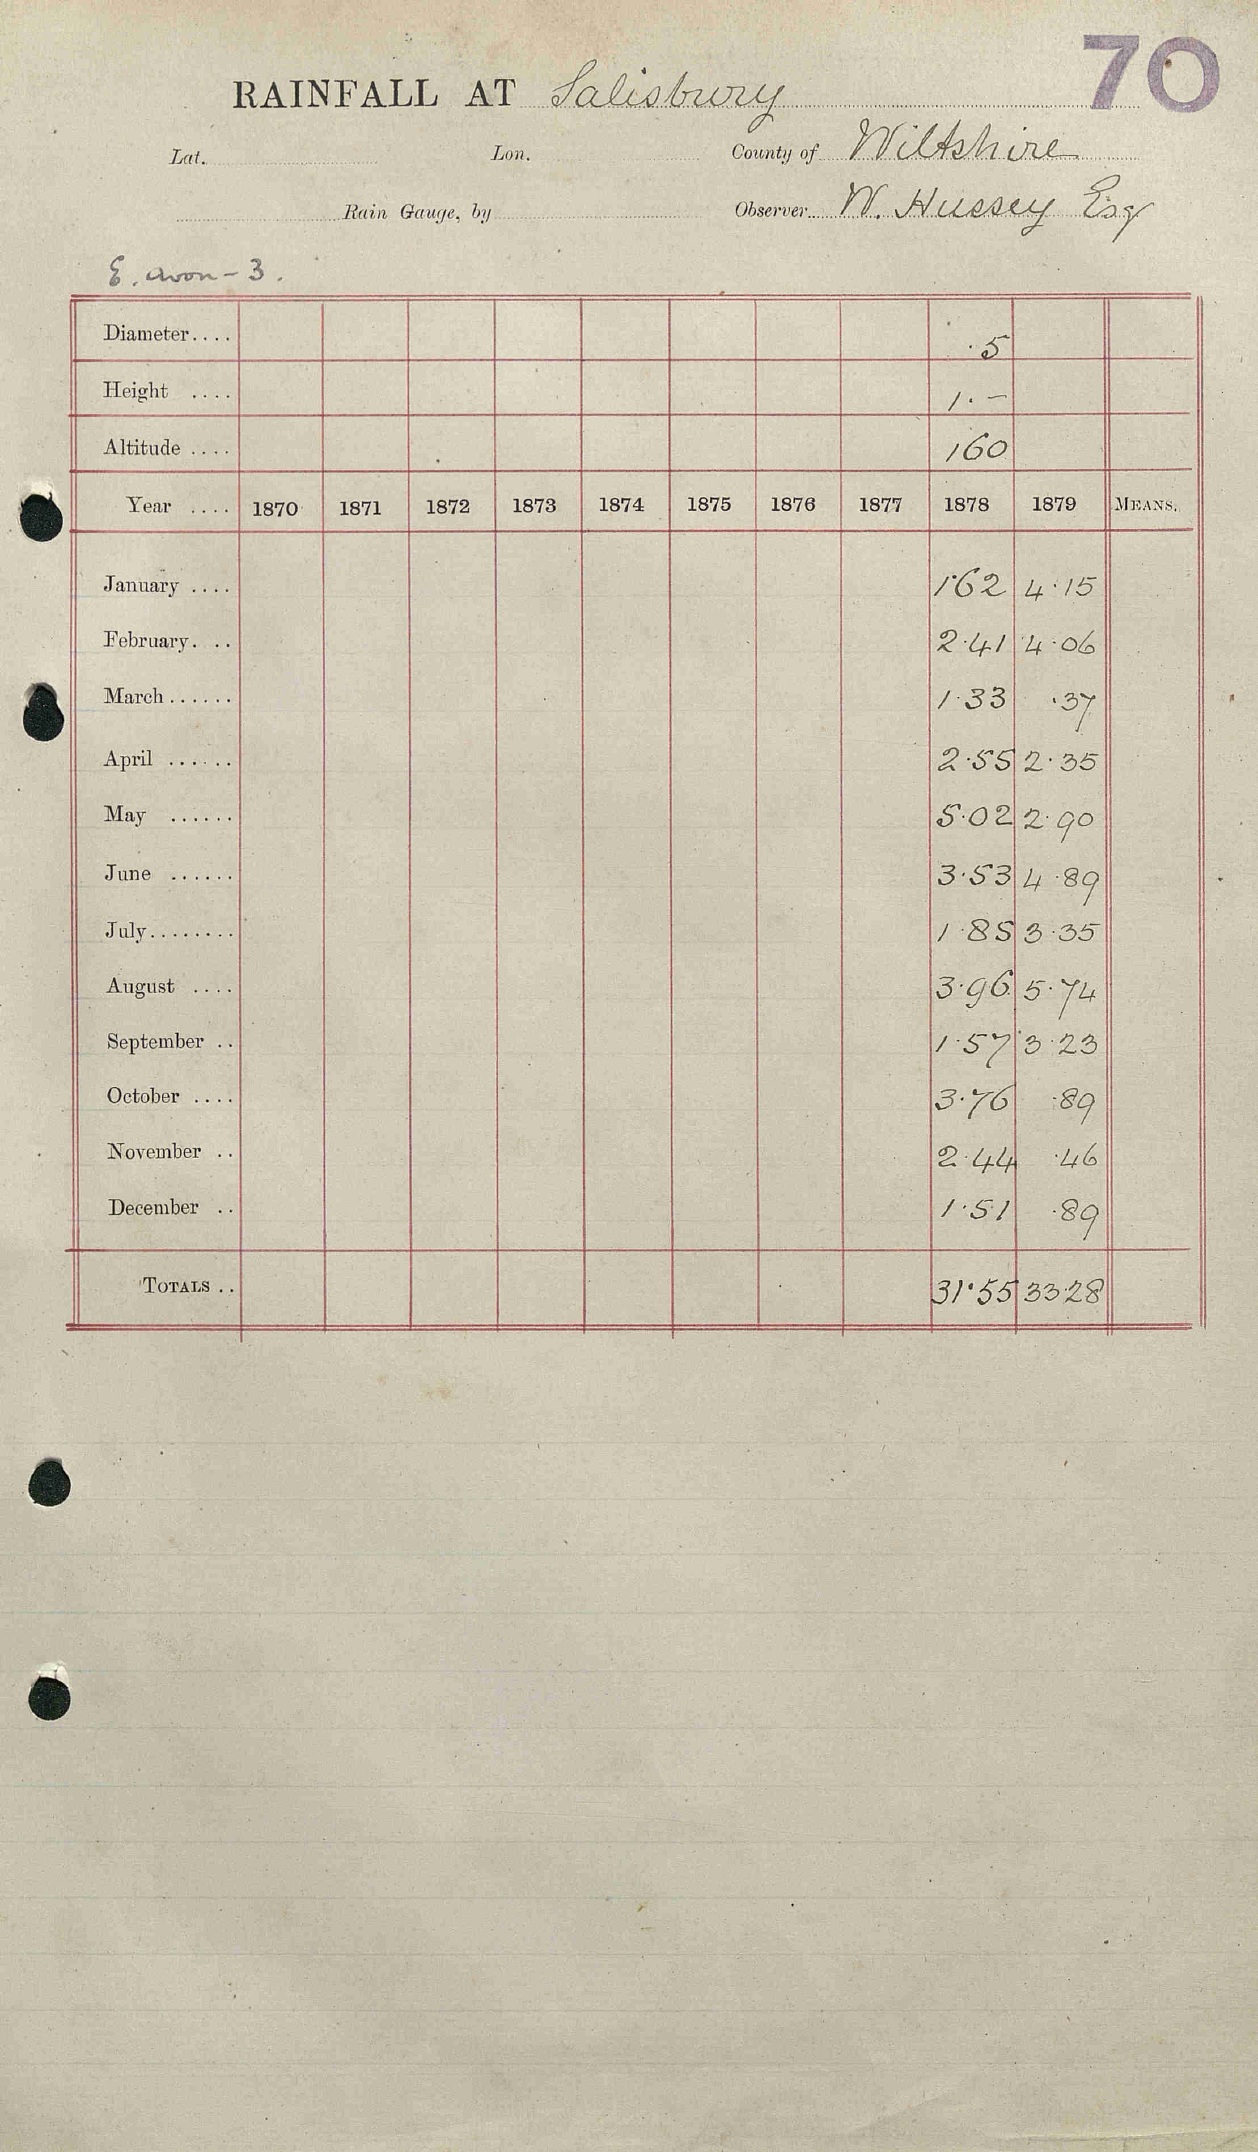 70
RAINFALL AT Salisbury
Lat. Lon. County of Wiltshire
Rain Gauge, by Observer W. Hussey Esq
E. Avon - 3.
Diameter.... ·5
Height .... 1·–
Altitude .... 160
Year .... 1870 1871 1872 1873 1874 1875 1876 1877 1878 1879 MEANS.
January .... 1·62 4·15
February. .. 2·41 4·06
March...... 1·33 ·37
April ...... 2·55 2·35
May ...... 5·02 2·90
June ...... 3·53 4·89
July........ 1·85 3·35
August .... 3·96 5·74
September .. 1·57 3·23
October .... 3·76 ·89
November .. 2·44 ·46
December .. 1·51 ·89
TOTALS .. 31·55 33·28